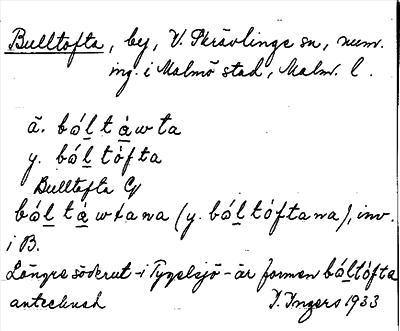 Bulltofta, by, V. Skrävlinge sn, num.
ing. i Malmö stad, Malm. l.
ä. bó̲l̲tá̲wta
y. bó̲l̲tófta
Bulltofta G
bó̲l̲tá̲wtana (y. bó̲l̲tóftana), inv.
i B.
Längre söderut – i Tygelsjö – är formen bó̲l̲tófta
antecknad I. Ingers 1933